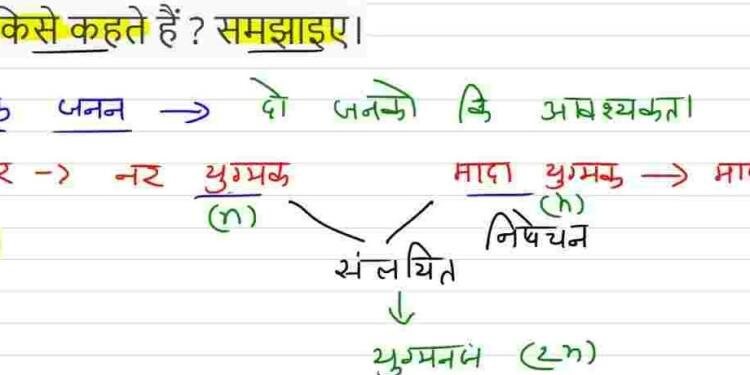 किसे कहते हैं ? समझाइए।
जनन → दो जनको कि आवश्यकता
→ नर युग्मक मादा युग्मक →
(n) (n)
निषेचन
संलयित
↓
युग्मनज (2n)